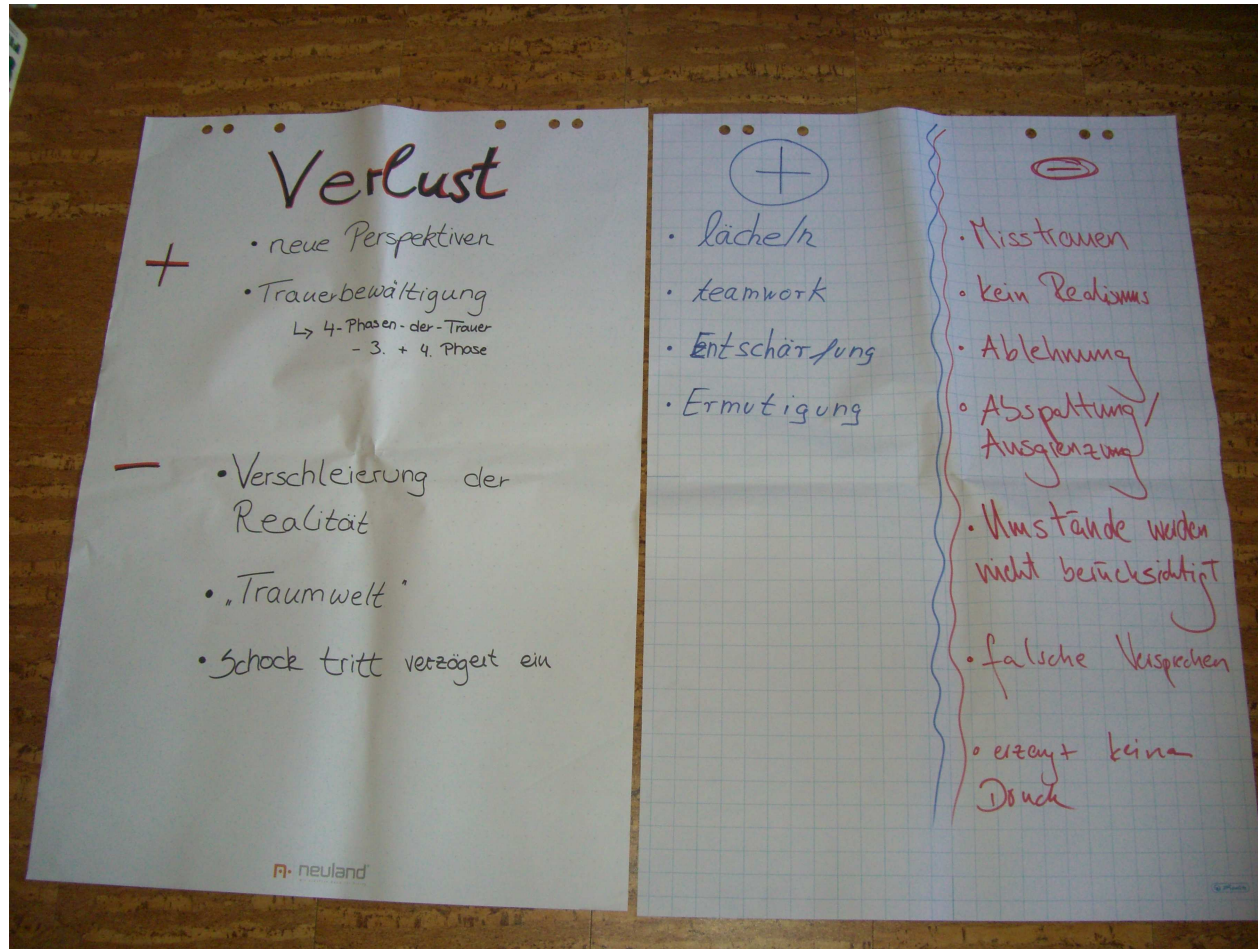 Verlust
+
• neue Perspektiven
• Trauerbewältigung
↳ 4-Phasen-der-Trauer
- 3. + 4. Phase
−
• Verschleierung der
Realität
• „Traumwelt"
• Schock tritt verzögert ein
neuland
+
• lächeln
• teamwork
• Entschärfung
• Ermutigung
−
• Misstrauen
• kein Realismus
• Ablehnung
• Abspaltung/
Ausgrenzung
• Umstände werden
nicht berücksichtigt
• falsche Versprechen
• erzeugt keinen
Druck